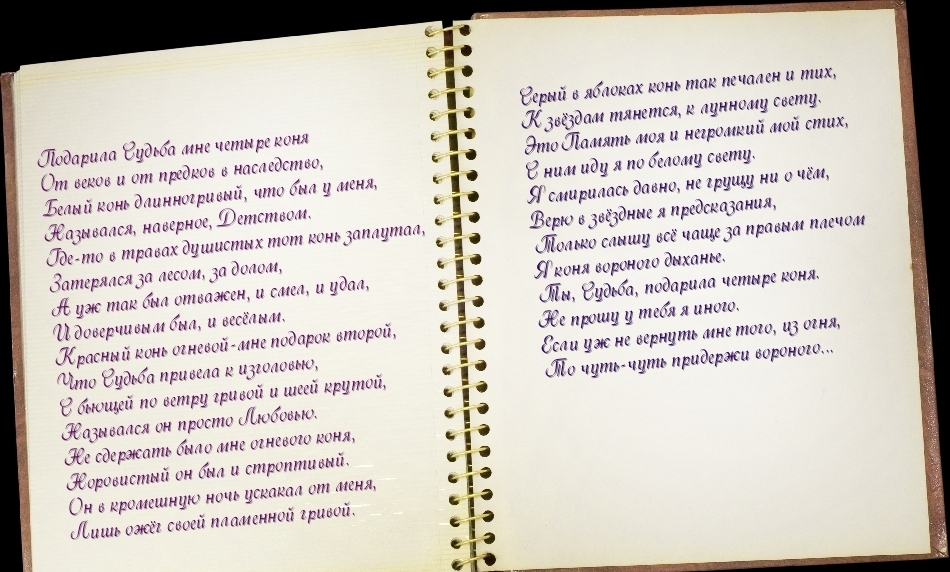 Подарила Судьба мне четыре коня
От веков и от предков в наследство,
Белый конь длинногривый, что был у меня,
Назывался, наверное, Детством.
Где-то в травах душистых тот конь заплутал,
Затерялся за лесом, за долом,
А уж так был отважен, и смел, и удал,
И доверчивым был, и весёлым.
Красный конь огневой-мне подарок второй,
Что Судьба привела к изголовью,
С бьющей по ветру гривой и шеей крутой,
Назывался он просто Любовью.
Не сдержать было мне огневого коня,
Норовистый он был и строптивый.
Он в кромешную ночь ускакал от меня,
Лишь ожёг своей пламенной гривой.
Серый в яблоках конь так печален и тих,
К звёздам тянется, к лунному свету.
Это Память моя и негромкий мой стих,
С ним иду я по белому свету.
Я смирилась давно, не грущу ни о чём,
Верю в звёздные я предсказания,
Только слышу всё чаще за правым плечом
Я коня вороного дыханье.
Ты, Судьба, подарила четыре коня.
Не прошу у тебя я иного.
Если уж не вернуть мне того, из огня,
То чуть-чуть придержи вороного...